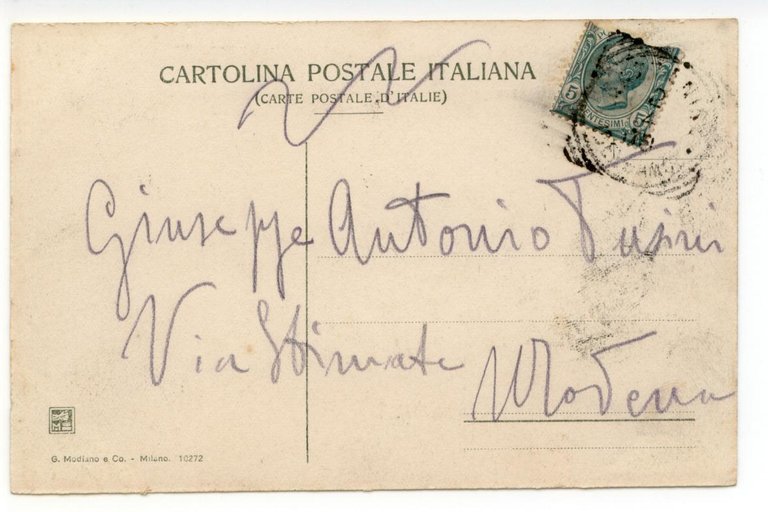 CARTOLINA POSTALE ITALIANA
(CARTE POSTALE D'ITALIE)
5 5
CENTESIMI
Giuseppe Antonio Fusini
Via Stimate
Modena
G. Modiano e Co. - Milano. 10272